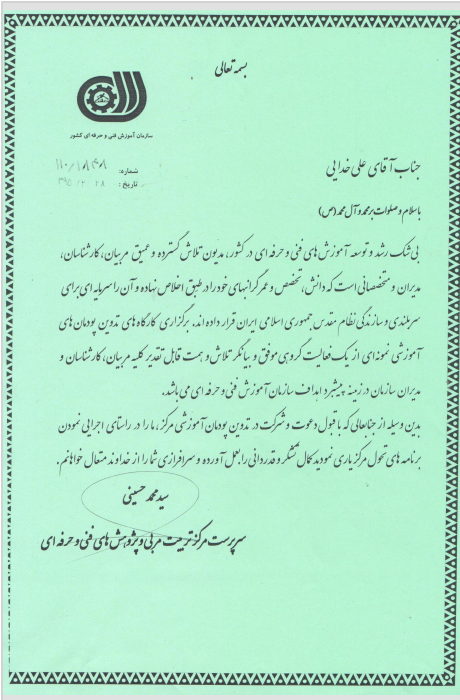 بسمه تعالی
سازمان آموزش فنی و حرفه ای کشور
شماره: ۱۱۰/۱۸۴۸
تاریخ: ۲۸ /۲۰/
جناب آقای علی خدایی
با سلام و صلوات بر محمد و آل محمد (ص)
بی شک رشد و توسعه آموزش های فنی و حرفه ای در کشور، مدیون تلاش گسترده و عمیق مربیان، کارشناسان،
مدیران و متخصصانی است که دانش، تخصص و عمر گرانبهای خود را در طبق اخلاص نهاده و آن را سرمایه ای برای
سربلندی و سازندگی نظام مقدس جمهوری اسلامی ایران قرار داده اند. برگزاری کارگاه های تدوین پودمان های
آموزشی نمونه ای از یک فعالیت گروهی موفق و بیانگر تلاش و همت قابل تقدیر کلیه مربیان، کارشناسان و
مدیران سازمان در زمینه پیشبرد اهداف سازمان آموزش فنی و حرفه ای می باشد.
بدین وسیله از جنابعالی که با قبول دعوت و شرکت در تدوین پودمان آموزشی مرکز، ما را در راستای اجرایی نمودن
برنامه های تحول مرکز یاری نمودید کمال تشکر و قدردانی را بعمل آورده و سرافرازی شما را از خداوند متعال خواهانم.
سید محمد حسینی
سرپرست مرکز تربیت مربی و پژوهش های فنی و حرفه ای